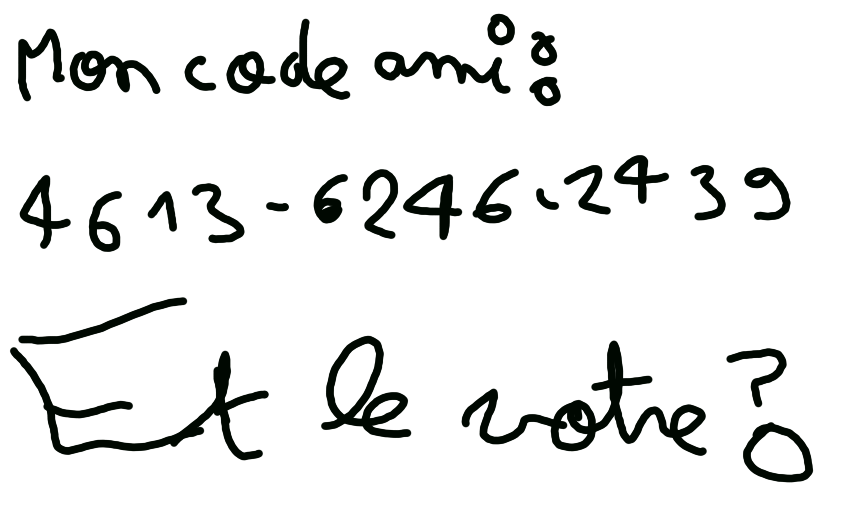 Mon code ami :
4613-6246-2439
Et le votre ?